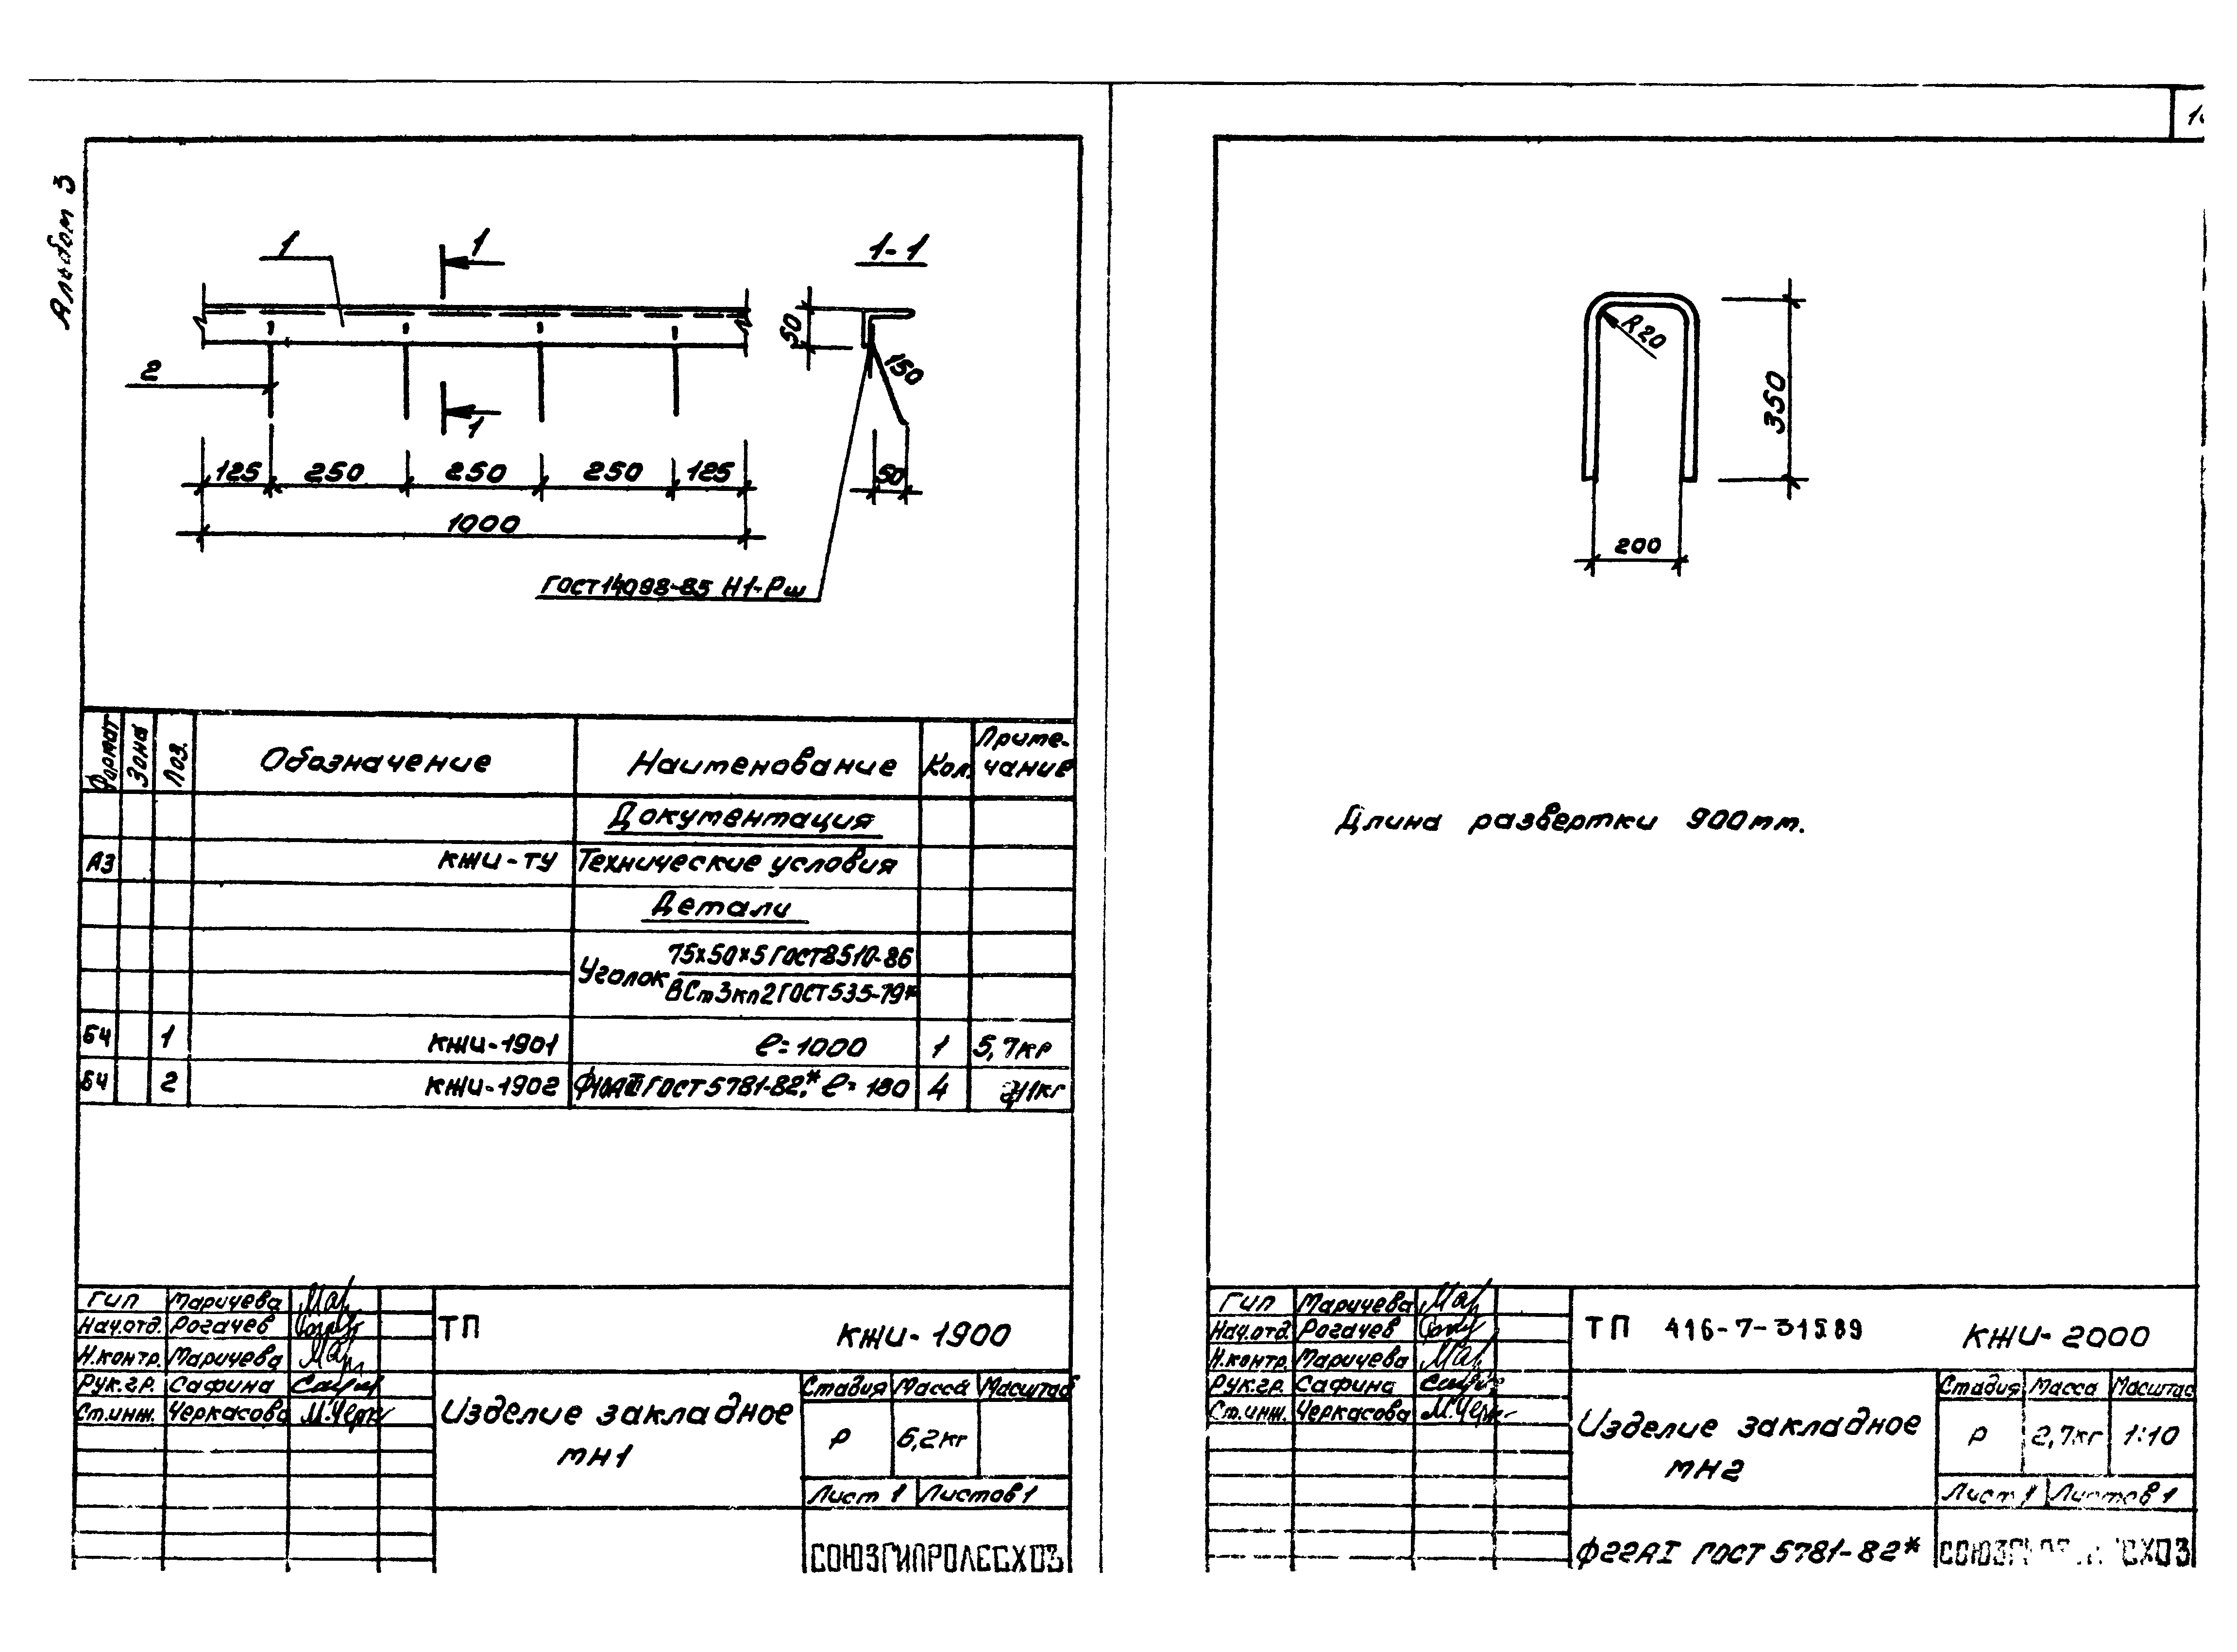 Альбом 3
1
1
1-1
50
150
2
1
125 250 250 250 125
50
1000
ГОСТ 14098-85 Н1-Рш
Формат Зона Поз. Обозначение Наименование Кол. Приме-
чание
Документация
А3 КЖИ-ТУ Технические условия
Детали
Уголок 75х50х5 ГОСТ 8510-86
ВСт3кп2 ГОСТ 535-79*
БЧ 1 КЖИ-1901 ℓ=1000 1 5,7кг
БЧ 2 КЖИ-1902 ГОСТ 5781-82*, ℓ= 4
ГИП Маричева
Нач.отд. Рогачев
Н.контр. Маричева
Рук.гр. Сафина
Ст.инж. Черкасова
ТП КЖИ-1900
Изделие закладное
МН1
Стадия Масса Масштаб
Р 6,2кг
Лист 1 Листов 1
СОЮЗГИПРОЛЕСХОЗ
R20
350
200
Длина развертки 900мм.
ГИП Маричева
Нач.отд. Рогачев
Н.контр. Маричева
Рук.гр. Сафина
Ст.инж. Черкасова
ТП 416-7- КЖИ-2000
Изделие закладное
МН2
Стадия Масса Масштаб
Р 2,7кг 1:10
Лист 1 Листов 1
Ф22АI ГОСТ 5781-82*